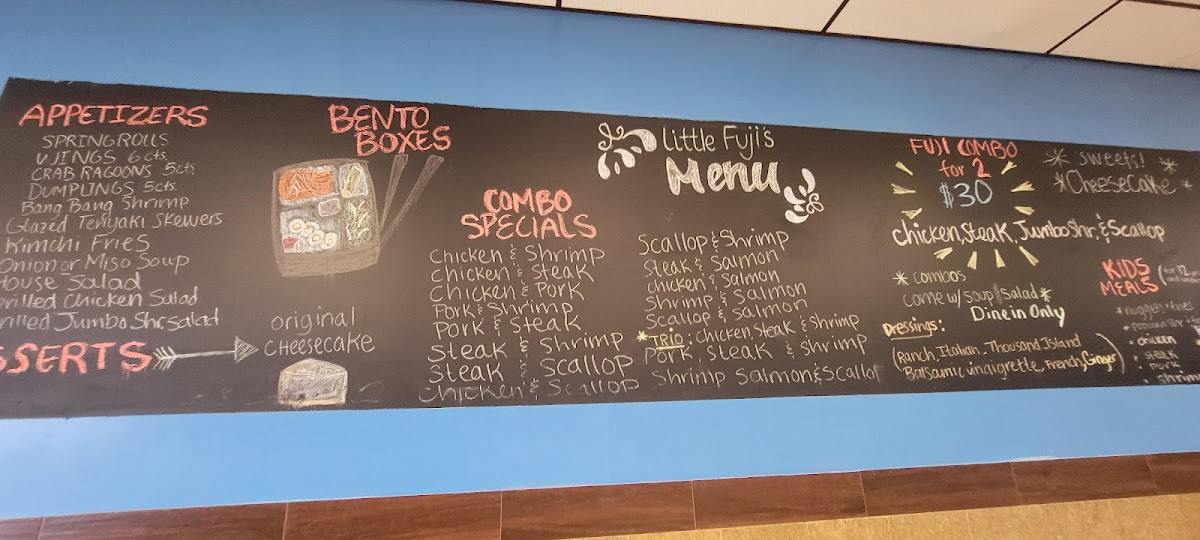 APPETIZERS
SPRING ROLLS
WINGS 6 cts.
CRAB RAGOONS 5cts
DUMPLINGS 5cts.
Bang Bang Shrimp
Glazed Teriyaki Skewers
Kimchi Fries
Onion or Miso Soup
House Salad
Grilled Chicken Salad
Grilled Jumbo Shr. Salad
SSERTS
BENTO
BOXES
original
CHeesecake
COMBO
SPECIALS
Chicken & Shrimp
Chicken & Steak
Chicken & Pork
Pork & Shrimp
Pork & Steak
Steak & Shrimp
Steak & Scallop
Chicken & Scallop
Little Fuji's
Menu
Scallop & Shrimp
Steak & Salmon
Chicken & Salmon
Shrimp & Salmon
Scallop & Salmon
*TRIO: Chicken Steak & Shrimp
Pork, Steak & Shrimp
Shrimp Salmon & Scallop
FUJI COMBO
for 2
$30
Chicken, Steak, Jumbo Shr, & Scallop
* combos
come w/ soup/salad*
Dine in Only
Dressings:
(Ranch, Italian, Thousand Island
Balsamic Vinaigrette, French, Ginger)
* sweets! *
*CHeeseCake *
KIDS
MEALS
* nuggets + fries
* chicken
* steak
* pork
* shrimp